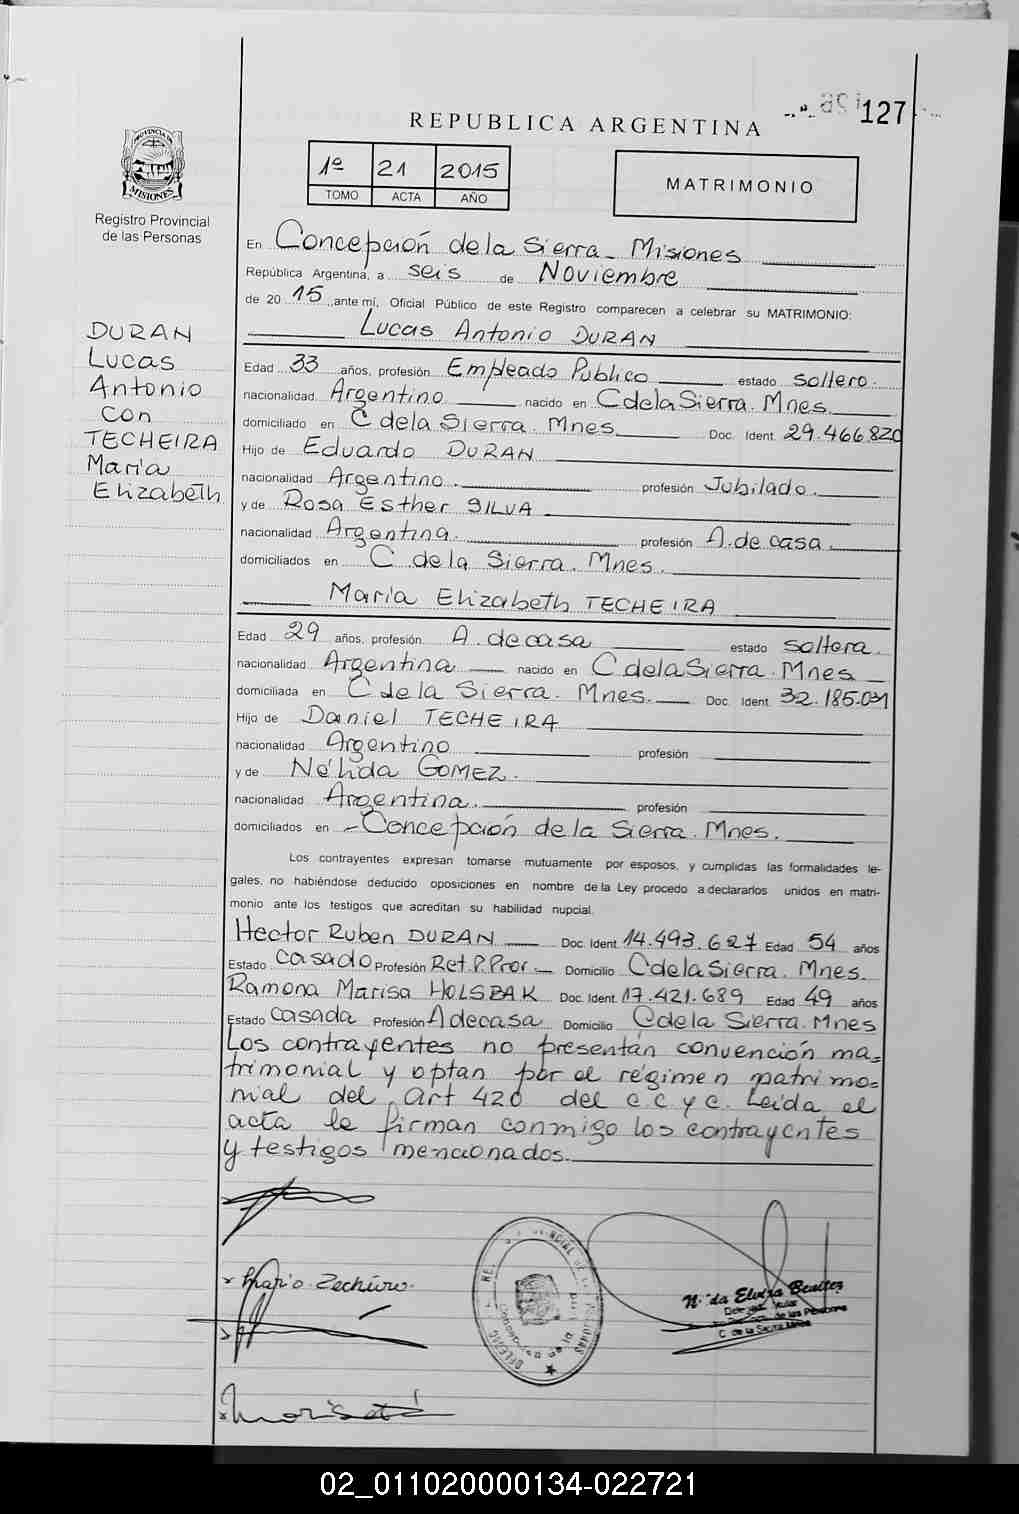 127
REPUBLICA ARGENTINA
1º 21 2015
TOMO ACTA AÑO
MATRIMONIO
PROVINCIA DE MISIONES
Registro Provincial
de las Personas
DURAN
Lucas
Antonio
con
TECHEIRA
Maria
Elizabeth
En Concepción de la Sierra - Misiones
República Argentina, a seis de Noviembre
de 20 15, ante mi, Oficial Público de este Registro comparecen a celebrar su MATRIMONIO:
Lucas Antonio DURAN
Edad 33 años, profesión Empleado Publico estado soltero.
nacionalidad Argentino nacido en C de la Sierra. Mnes
domiciliado en C de la Sierra. Mnes Doc. Ident. 29.466.820
Hijo de Eduardo DURAN
nacionalidad Argentino. profesión Jubilado.
y de Rosa Esther SILVA
nacionalidad Argentina. profesión A. de casa.
domiciliados en C de la Sierra. Mnes.
Maria Elizabeth TECHEIRA
Edad 29 años, profesión A. de casa estado soltera.
nacionalidad Argentina nacido en C de la Sierra. Mnes
domiciliada en C de la Sierra. Mnes. Doc. Ident. 32.185.031
Hijo de Daniel TECHEIRA
nacionalidad Argentino profesión
y de Nélida GOMEZ.
nacionalidad Argentina. profesión
domiciliados en - Concepción de la Sierra. Mnes.
Los contrayentes expresan tomarse mutuamente por esposos, y cumplidas las formalidades le-
gales, no habiéndose deducido oposiciones en nombre de la Ley procedo a declararlos unidos en matri-
monio ante los testigos que acreditan su habilidad nupcial.
Hector Ruben DURAN Doc. Ident. 14.493.627 Edad 54 años
Estado casado Profesión Ret. P. Prov. Domicilio C de la Sierra. Mnes.
Ramona Marisa HOLSBAK Doc. Ident. 17.421.689 Edad 49 años
Estado casada Profesión A de casa Domicilio C de la Sierra. Mnes
Los contrayentes no presentan convención ma=
trimonial y optan por el régimen patrimo=
nial del Art 420 del c.c y c. Leida el
acta la firman conmigo los contrayentes
y testigos mencionados.
Elvira Benitez
C. de la Sierra
02_011020000134-022721